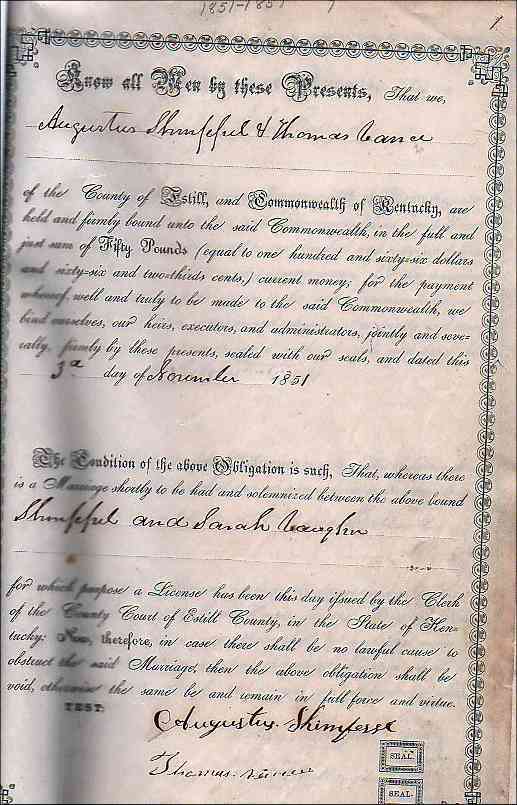 1851-1857 1
1
Know all Men by these Presents, That we,
Augustus Shimpful & Thomas Vance
of the County of Estill, and Commonwealth of Kentucky, are
held and firmly bound unto the said Commonwealth, in the full and
just sum of Fifty Pounds (equal to one hundred and sixty-six dollars
and sixty-six and two-thirds cents,) current money; for the payment
whereof, well and truly to be made to the said Commonwealth, we
bind ourselves, our heirs, executors, and administrators, jointly and seve-
rally, firmly by these presents, sealed with our seals, and dated this
3d day of November 1851
The Condition of the above Obligation is such, That, whereas there
is a Marriage shortly to be had and solemnized between the above bound
Shimpful and Sarah Vaughn
for which purpose a License has been this day issued by the Clerk
of the County Court of Estill County, in the State of Ken-
tucky: Now, therefore, in case there shall be no lawful cause to
obstruct the said Marriage, then the above obligation shall be
void, otherwise the same be and remain in full force and virtue.
TEST:
Augustus
SEAL.
Thomas
SEAL.